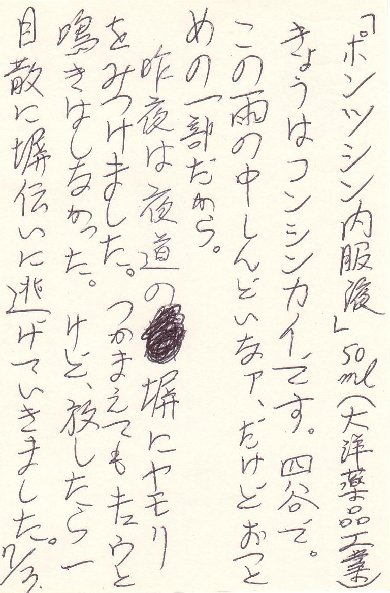 「ポンツシン内服液」50ml(大洋薬品工業)
きょうはコンシンカイです。四谷で。
この雨の中しんどいなァ、だけどおつと
めの一部だから。
昨夜は夜道の塀にヤモリ
をみつけました。つかまえてもキュウと
鳴きはしなかった。けど、放したら一
目散に塀伝いに逃げていきました。7/3.